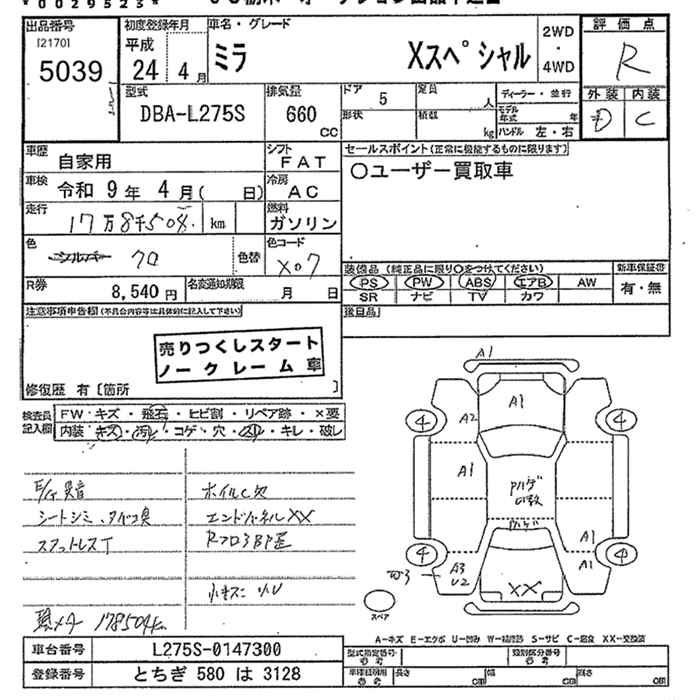 *0029523*
出品番号
[2170]
5039
初度登録年月
平成
24 年 4 月
車名・グレード
ミラ Xスペシャル
2WD
・
4WD
評価点
R
外装 内装
D C
型式
DBA-L275S
排気量
660
CC
ドア 5
形状
定員 人
積載 kg
ディーラー・並行
モデル年式 年
ハンドル 左・右
車歴
自家用
シフト
FAT
車検 令和 9年 4月( 日)
冷房
AC
走行
17万8千504 km
燃料
ガソリン
色
シルバー クロ
色替
色コード
X07
R券
8,540 円
名変通知期限
月 日
セールスポイント(正常に機能するものに限ります)
○ユーザー買取車
装備品(純正品に限り○をつけてください)
新車保証書
PS PW ABS エアB AW
有・無
SR ナビ TV カワ
後日品
注意事項申告欄(不具合内容等は具体的に記入して下さい)
売りつくしスタート
ノークレーム車
修復歴 有〔箇所 〕
検査員記入欄
FW・キズ・飛石・ヒビ割・リペア跡・×要
内装・キズ・汚れ・コゲ・穴・スレ・キレ・破し
E/g異音
シートシミ
スタットレスT
ホイルC欠
エンドパネルXX
小キズ
メータ 178504K
A1
4
A2
A1
4
A1
A1
4
A3
U2
A1
4
XX
スペア
A-キズ E-エクボ U-凹み W-補修跡 S-サビ C-腐食 XX-交換済
車台番号
L275S-0147300
登録番号
とちぎ 580 は 3128
型式指定番号
参考
類別区分番号
参考
長さ cm 幅 cm 高さ cm